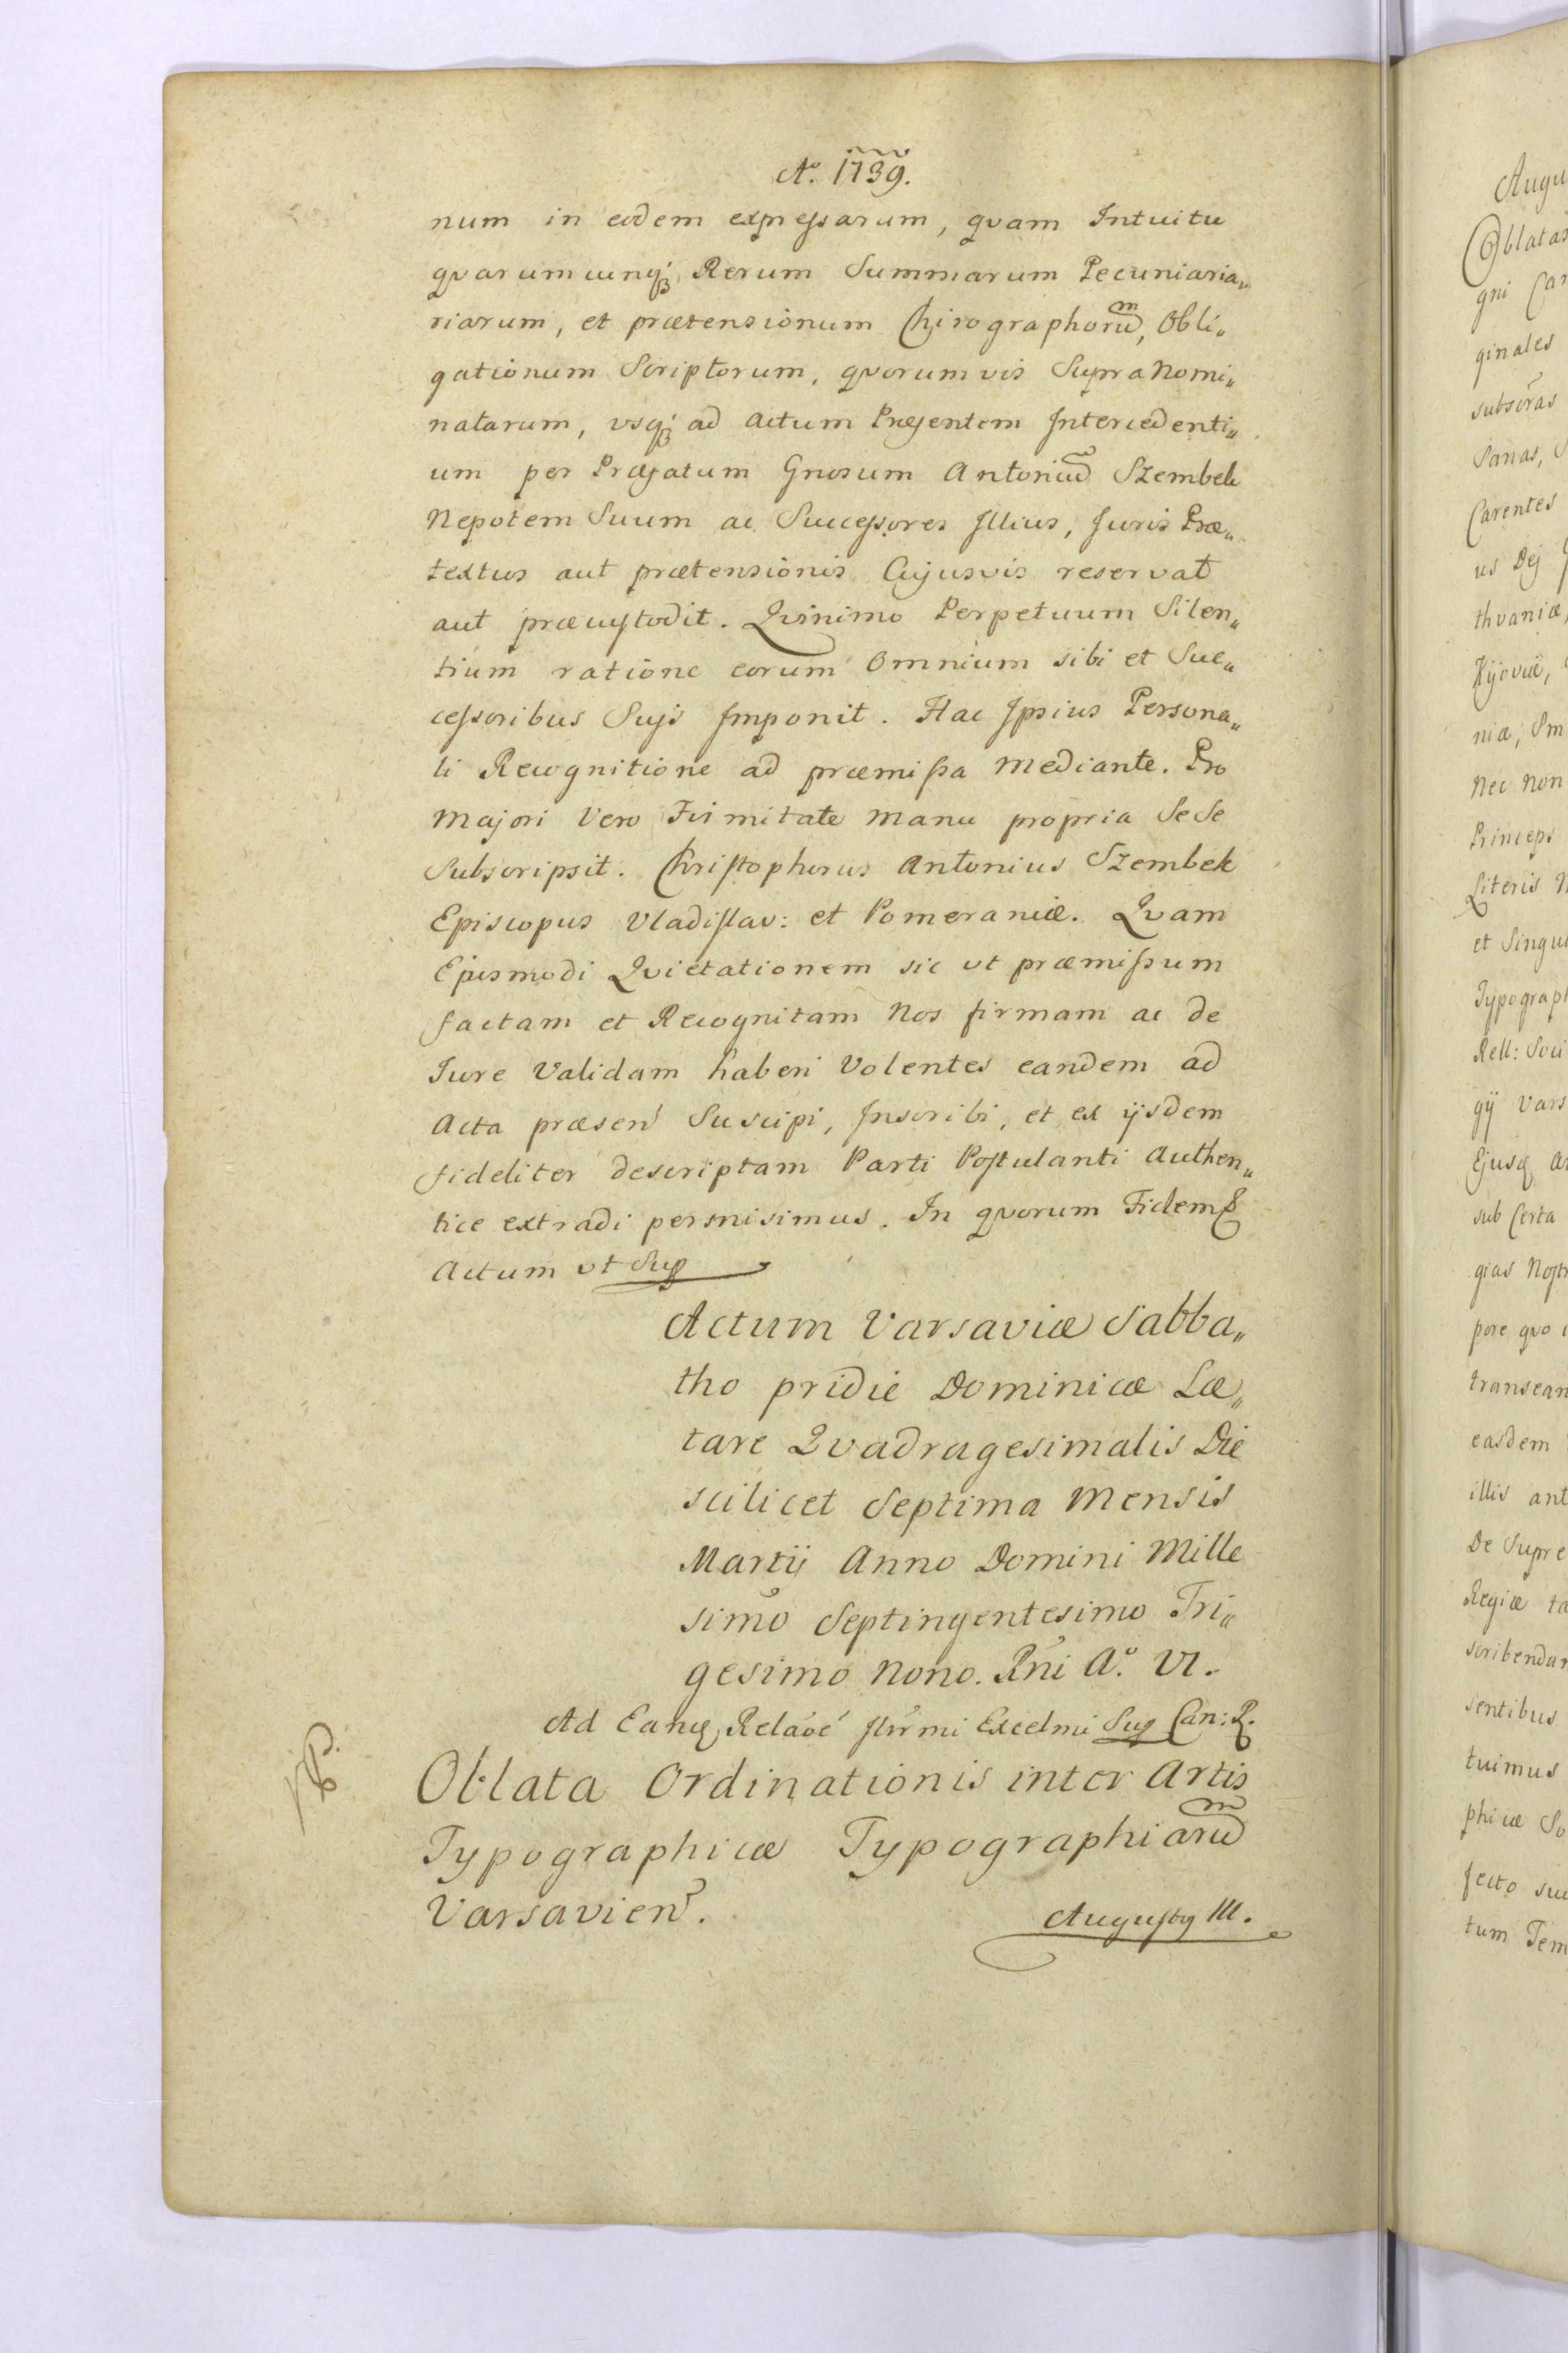 Aº. 1739.
num in eodem expressarum, quam Intuitu
quarumcunq; Rerum Summarum Pecuniaria„
riarum, et prætensionum Chirographorũm, Obli„
gationum Scriptorum, quorumvis Supra Nomi„
natarum, usq; ad actum Præsentem Intercedenti„
um per Præfatum Gnosum Antoniũ Szembek
Nepotem Suum ac Successores Illius, Juris Præ„
textus aut prætensionis Cujusvis reservat
aut præcustodit. Quinimo Perpetuum Silen„
tium ratione eorum Omnium sibi et Suc„
cessoribus Suis Imponit. Hac Ipsius Persona„
li Recognitione ad præmissa mediante. Pro
Majori Vero Firmitate manu propria Se Se
Subscripsit. Christophorus Antonius Szembek
Episcopus Vladislav: et Pomeraniæ. Quam
Ejusmodi Quietationem sic ut præmissum
factam et Recognitam Nos firmam ac de
Jure Validam haberi Volentes eandem ad
Acta præsen̄ Suscipi, Inscribi, et ex ijsdem
fideliter descriptam Parti Postulanti Authen„
tice extradi permisimus. In quorum Fidem &
Actum ut Sup
Actum Varsaviæ Sabba„
tho pridie Dominicæ Læ„
tare Quadragesimalis Die
scilicet Septima Mensis
Martij Anno Domini Mille
simo Septingentesimo Tri„
gesimo Nono. Rñi Aº. VI.
Ad Eanq Relaõe Illr̃mi Excelmi Sup Can: R.
Oblata Ordinationis inter Artis
Typographicæ Typographiarũm
Varsavien̄.
Augusty III.
Augu
Oblatas
gni Can
ginales
subscras
Sanas, S
Carentes
us Dej
thvaniæ,
Kijoviæ,
niæ, Sm
Nec Non
Princeps
Literis N
et Singu
Typograph
Rell: Soci
gij Vars
Ejusq Ar
sub Certa
gias Nostr
pore quo
transean
easdem
illis ant
De Supre
Regiæ ta
scribendar
sentibus
tuimus
phicæ So
fecto suc
tum Tem